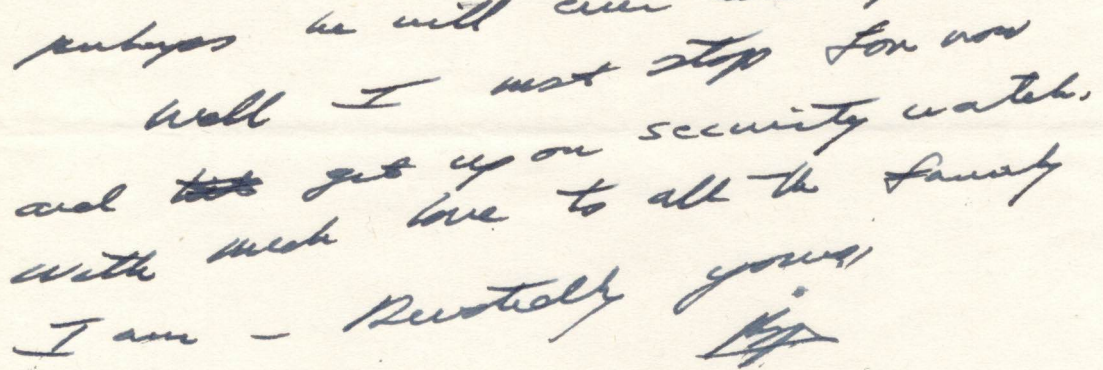 perhaps he will
Well I must stop for now
and get up on security watch.
With much love to all the family
I am - yours,